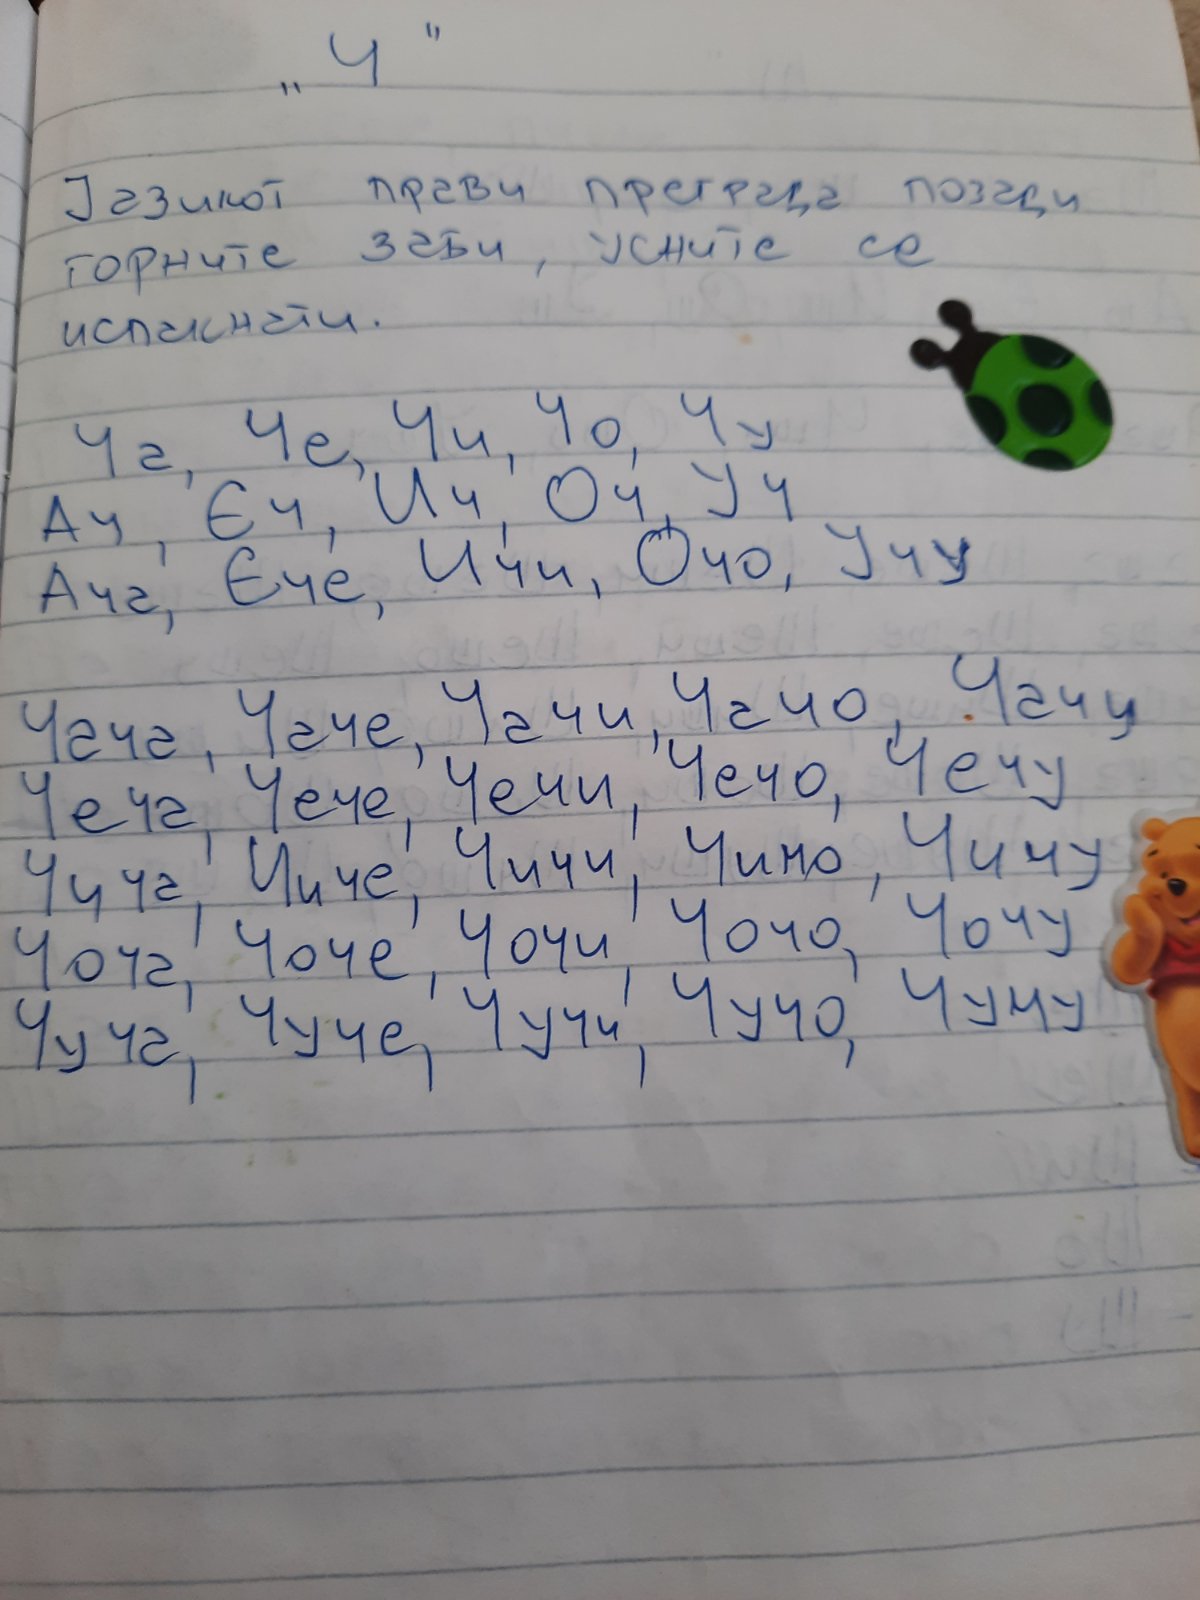 „Ч"
Јазикот прави преграда позади
горните заби, усните се
испакнати.
Ча, Че, Чи, Чо, Чу
Ач, Еч, Ич, Оч, Уч
Ача, Ече, Ичи, Очо, Учу
Чача, Чаче, Чачи, Чачо, Чачу
Чеча, Чече, Чечи, Чечо, Чечу
Чича, Чиче, Чичи, Чичо, Чичу
Чоча, Чоче, Чочи, Чочо, Чочу
Чуча, Чуче, Чучи, Чучо, Чучу